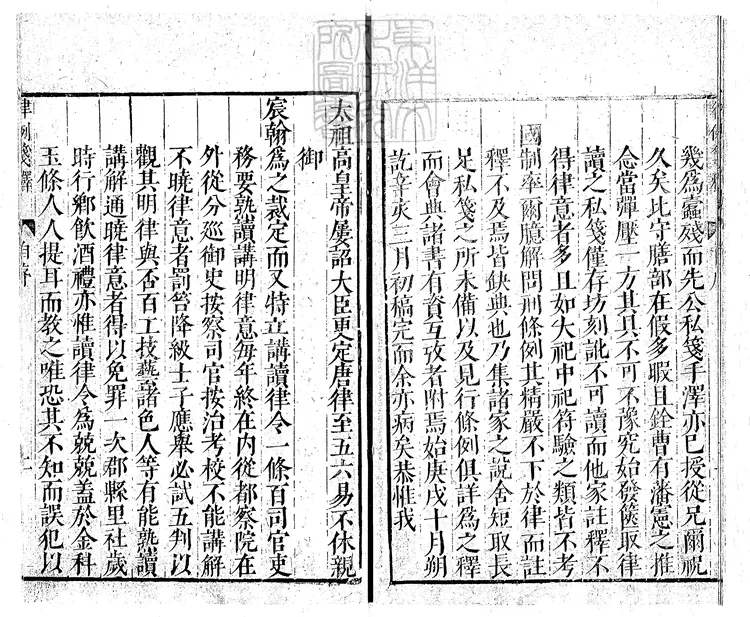 幾為蠹殘而先公私箋手澤亦已授從兄爾祝
久矣比守膳部在假多暇且銓曹有潘憲之推
念當彈壓一方其具不可不豫究始發篋取律
讀之私箋僅存坊刻訛不可讀而他家註釋不
得律意者多且如大祀中祀符驗之類皆不考
國制率爾臆解問刑條例其精嚴不下於律而註
釋不及焉皆缺典也乃集諸家之說舍短取長
足私箋之所未備以及見行條例俱詳為之釋
而會典諸書有資互攷者附焉始庚戌十月朔
訖辛亥三月初稿完而余亦病矣恭惟我
太祖高皇帝屢詔大臣更定唐律至五六易不休親
御
宸翰為之裁定而又特立講讀律令一條百司官吏
務要熟讀講明律意每年終在內從都察院在
外從分巡御史按察司官按治考校不能講解
不曉律意者罰笞降級士子應舉必試五判以
觀其明律與否百工技藝諸色人等有能熟讀
講解通曉律意者得以免罪一次郡縣里社歲
時行鄉飲酒禮亦惟讀律令為兢兢蓋於金科
玉條人人提耳而教之唯恐其不知而誤犯以
律例箋釋
自序